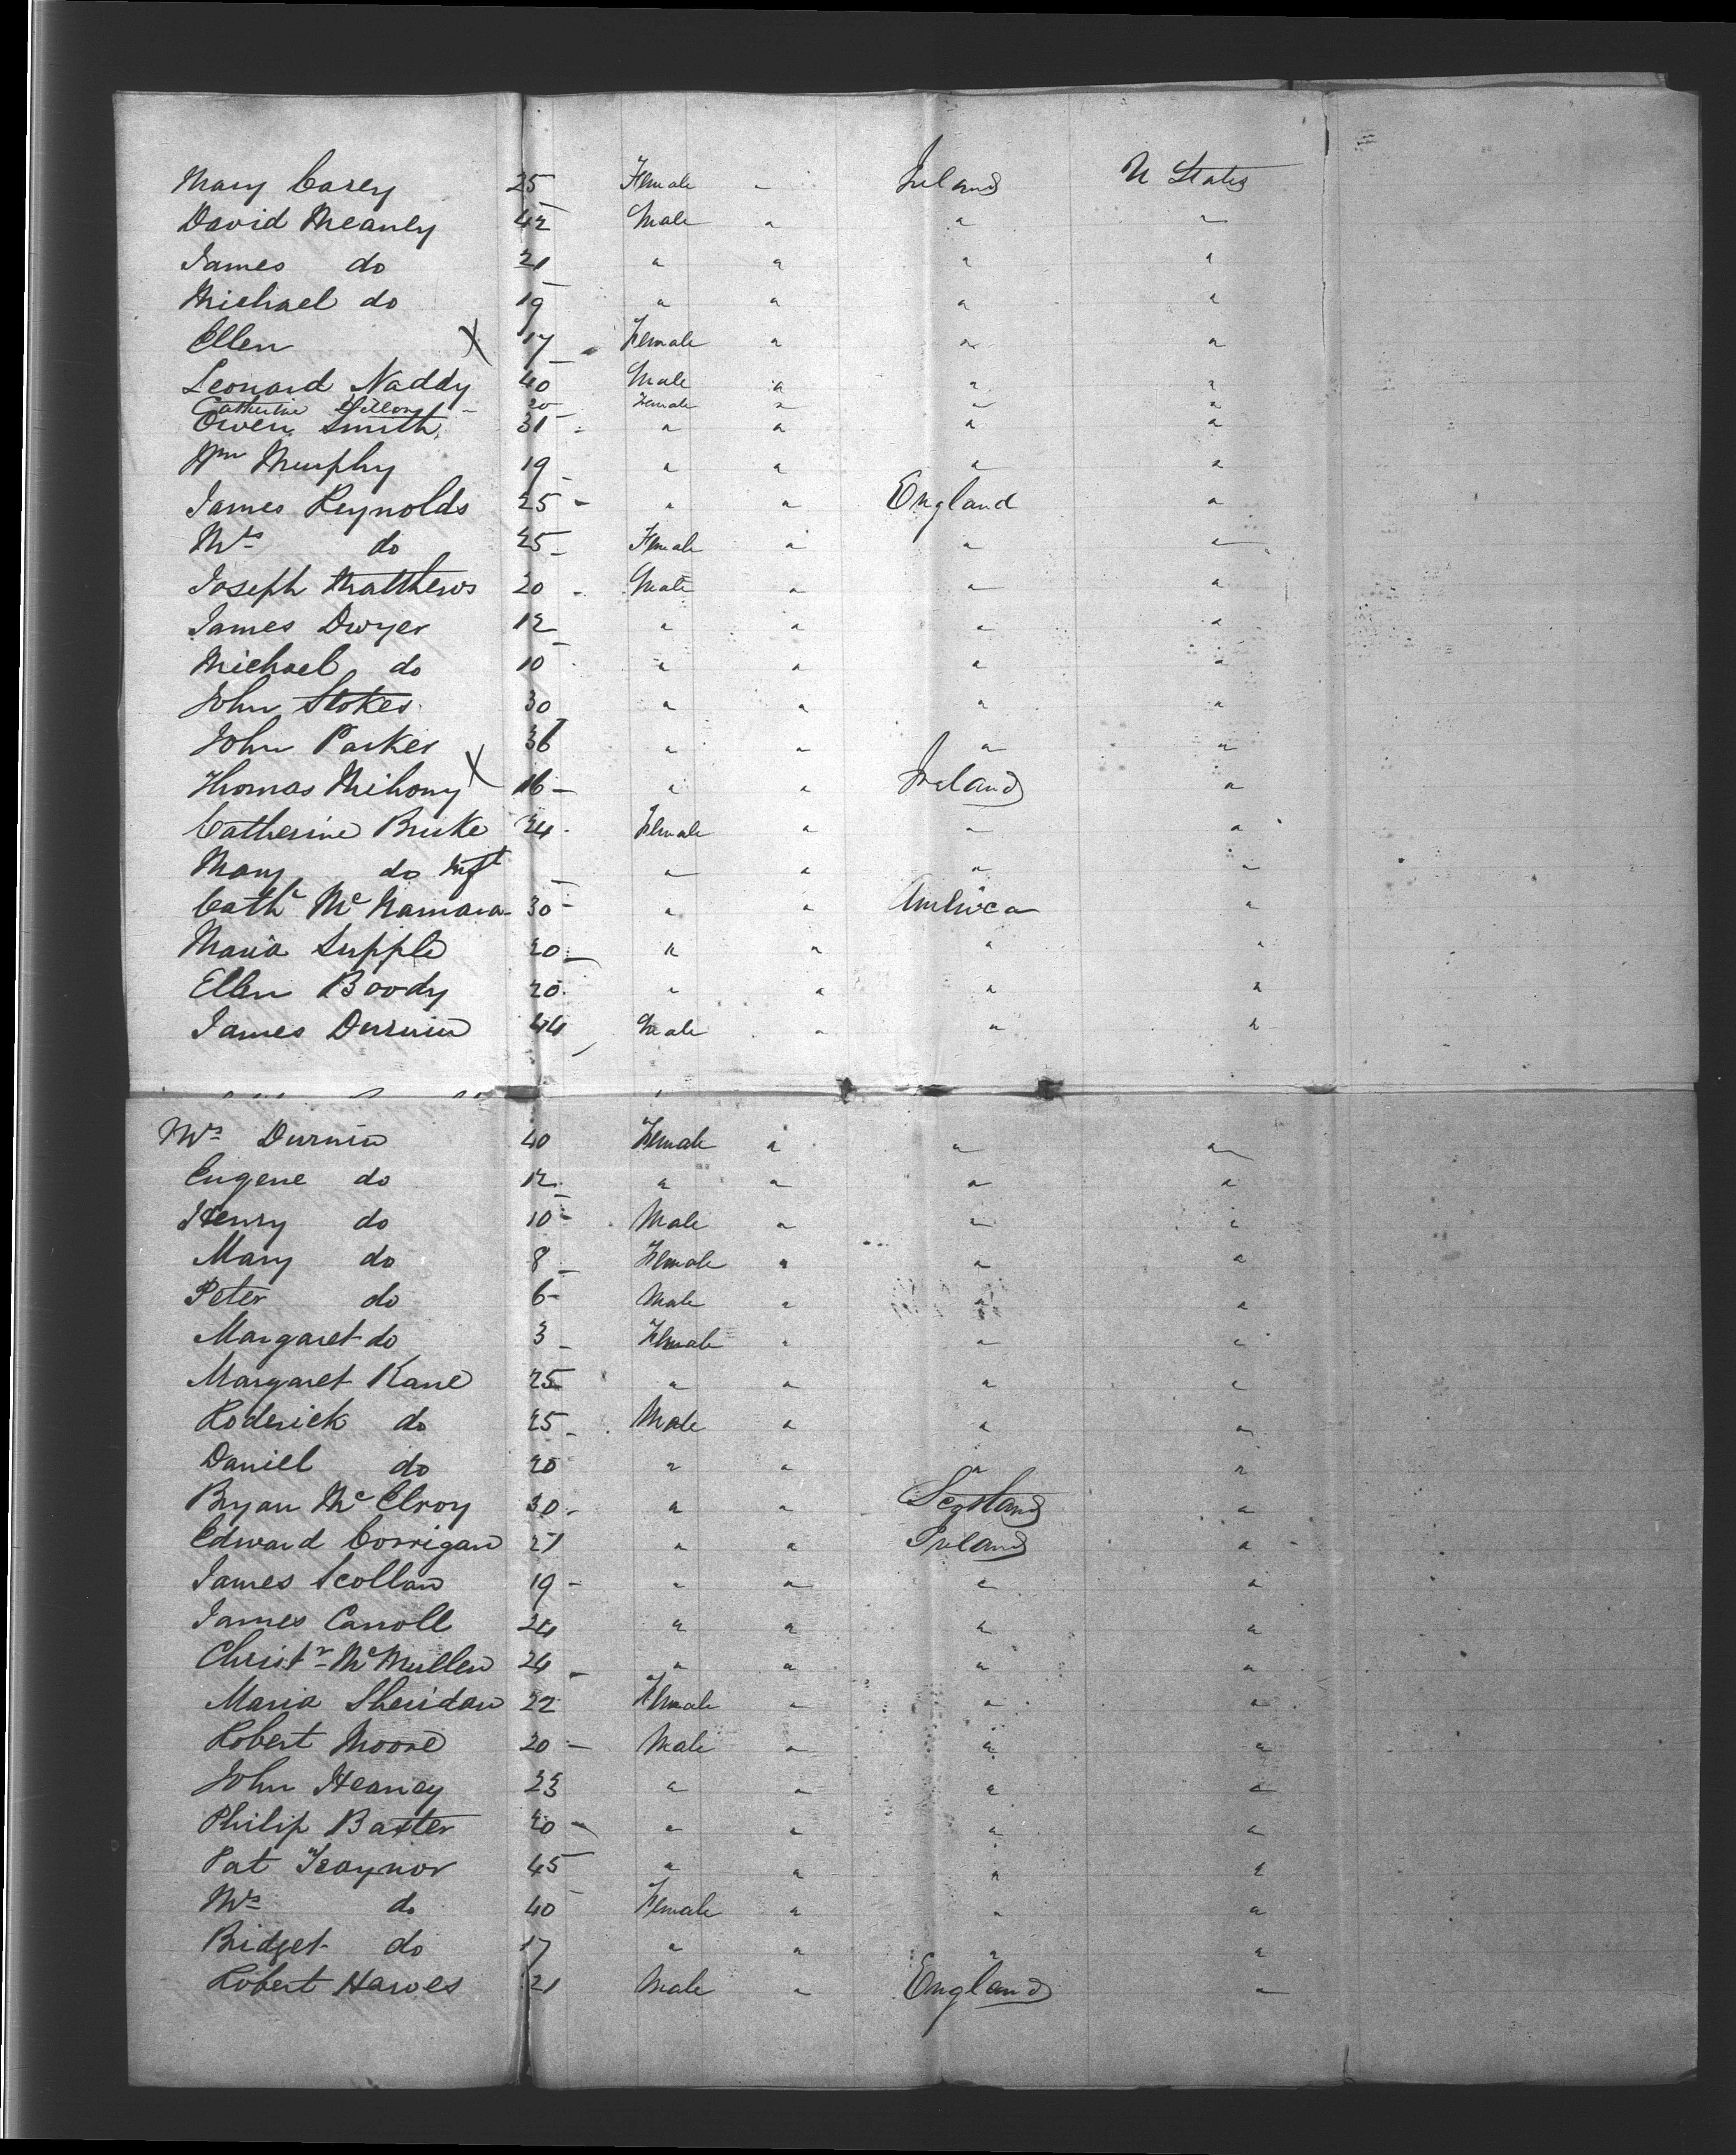 Mary Casey 25 Female " Ireland U States
David Meaney 42 Male " " "
James do 21 " " " "
Michael do 19 " " " "
Ellen X 17 Female " " "
Leonard Naddy 40 Male " " "
Catherine Dillon 20 Female " " "
Owen Smith 31 " " " "
Wm Murphy 19 " " " "
James Reynolds 25 " " England "
Mrs do 25 Female " " "
Joseph Matthews 20 Male " " "
James Dwyer 12 " " " "
Michael do 10 " " " "
John Stokes 30 " " " "
John Parker 36 " " " "
Thomas Mihony X 16 " " Ireland "
Catherine Burke 24 Female " " "
Mary do Inft " " " "
Cathe McNamara 30 " " America "
Maria Supple 20 " " " "
Ellen Boody 20 " " " "
James Durnin 44 Male " " "
Mrs Durnin 40 Female " " "
Eugene do 12 " " " "
Henry do 10 Male " " "
Mary do 8 Female " " "
Peter do 6 Male " " "
Margaret do 3 Female " " "
Margaret Kane 25 " " " "
Roderick do 25 Male " " "
Daniel do 20 " " " "
Bryan McElroy 30 " " Scotland "
Edward Corrigan 21 " " Ireland "
James Scollan 19 " " " "
James Carroll 24 " " " "
Christr McMullen 24 " " " "
Maria Sheridan 22 Female " " "
Robert Moore 20 Male " " "
John Heaney 23 " " " "
Philip Baxter 20 " " " "
Pat Traynor 45 " " " "
Mrs do 40 Female " " "
Bridget do 17 " " " "
Robert Hawes 21 Male " England "